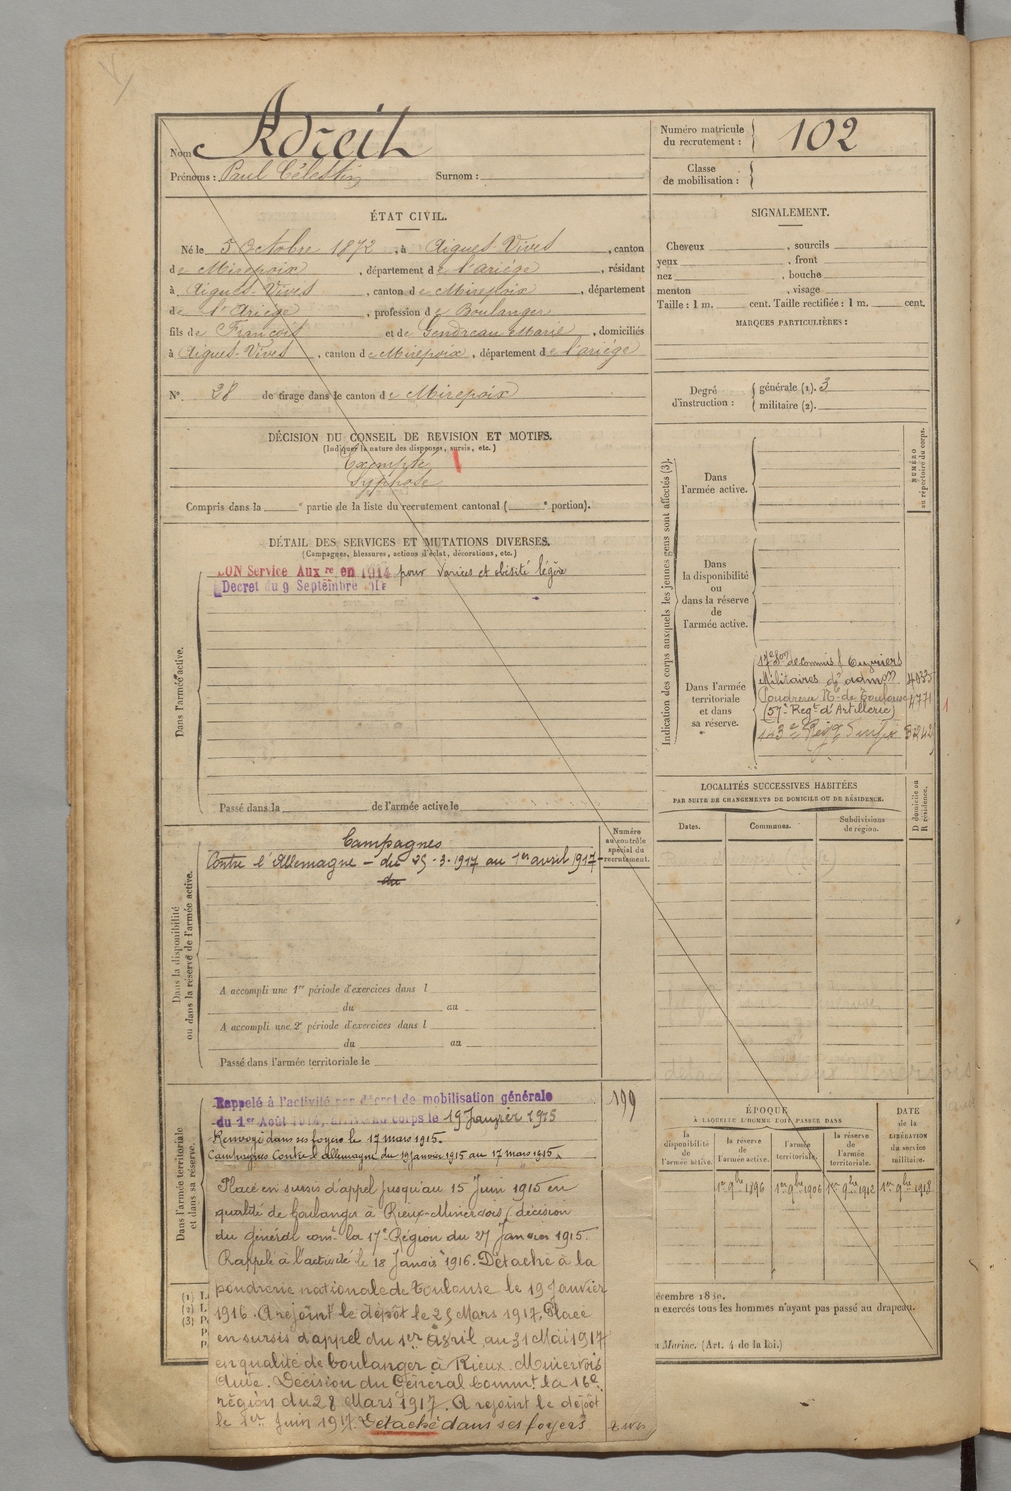 Nom Adreit
Prénoms : Paul Célestin Surnom :
Numéro matricule du recrutement : 102
Classe de mobilisation :
ÉTAT CIVIL.
Né le 5 Octobre 1872, à Aigues-Vives, canton
de Mirepoix, département de l'ariège, résidant
à Aigues-Vives, canton de Mirepoix, département
de l'Ariège, profession de Boulanger
fils de François et de Gendreau Marie, domiciliés
à Aigues-Vives, canton de Mirepoix, département de l'ariège
N° 28 de tirage dans le canton de Mirepoix
SIGNALEMENT.
Cheveux , sourcils
yeux , front
nez , bouche
menton , visage
Taille : 1 m. cent. Taille rectifiée : 1 m. cent.
MARQUES PARTICULIÈRES :
Degré d'instruction : générale (1). 3
militaire (2).
DÉCISION DU CONSEIL DE REVISION ET MOTIFS.
(Indiquer la nature des dispenses, sursis, etc.)
Exempté
Compris dans la e partie de la liste du recrutement cantonal ( e portion).
DÉTAIL DES SERVICES ET MUTATIONS DIVERSES.
(Campagnes, blessures, actions d'éclat, décorations, etc.)
BON Service Auxre en 1914 pour varices et obésité légère
Décret du 9 Septembre
Dans l'armée active.
Passé dans la de l'armée active le
Indication des corps auxquels les jeunes gens sont affectés (3).
NUMÉRO au répertoire du corps.
Dans l'armée active.
Dans la disponibilité ou dans la réserve de l'armée active.
Dans l'armée territoriale et dans sa réserve.
17e Son de commis & Ouvriers
Militaires d'admon
Poudrerie Nle de Toulouse 4771
(57e Regt d'Artillerie)
LOCALITÉS SUCCESSIVES HABITÉES
PAR SUITE DE CHANGEMENTS DE DOMICILE OU DE RÉSIDENCE.
D domicile ou R résidence.
Dates. Communes. Subdivisions de région.
Dans la disponibilité ou dans la réserve de l'armée active.
Numéro au contrôle spécial du recrutement.
Campagnes
Contre l'Allemagne – du 25-3-1917 au 1er avril 1917
du
A accompli une 1re période d'exercices dans l
du au
A accompli une 2e période d'exercices dans l
du au
Passé dans l'armée territoriale le
Dans l'armée territoriale et dans sa réserve.
Rappelé à l'activité par décret de mobilisation générale
du 1er Août 1914, arrivé au corps le 19 Janvier 1915
199
Renvoyé dans ses foyers le 17 mars 1915.
Campagnes Contre l'allemagne du 19 janvier 1915 au 17 mars 1915.
Placé en sursis d'appel jusqu'au 15 Juin 1915 en
qualité de boulanger à Rieux-Minervois (décision
du Général comt la 17e Région du 27 Janvier 1915.
Rappelé à l'activité le 18 Janvier 1916. Détaché à la
poudrerie nationale de Toulouse le 19 Janvier
1916. A rejoint le dépôt le 25 Mars 1917. Placé
en sursis d'appel du 1er Avril au 31 Mai 1917
en qualité de boulanger à Rieux-Minervois
Aude. Décision du Général Commt la 16e
région du 28 Mars 1917. A rejoint le dépôt
le 1er Juin 1917. Détaché dans ses foyers
ÉPOQUE
À LAQUELLE L'HOMME DOIT PASSER DANS
la disponibilité de l'armée active. la réserve de l'armée active. l'armée territoriale. la réserve de l'armée territoriale.
DATE de la LIBÉRATION du service militaire.
1er 9bre 1896 1er 9bre 1906 1er 9bre 1912 1er 9bre 1918
(1)
(2)
(3)
n exercés tous les hommes n'ayant pas passé au drapeau.
Marine. (Art. 4 de la loi.)